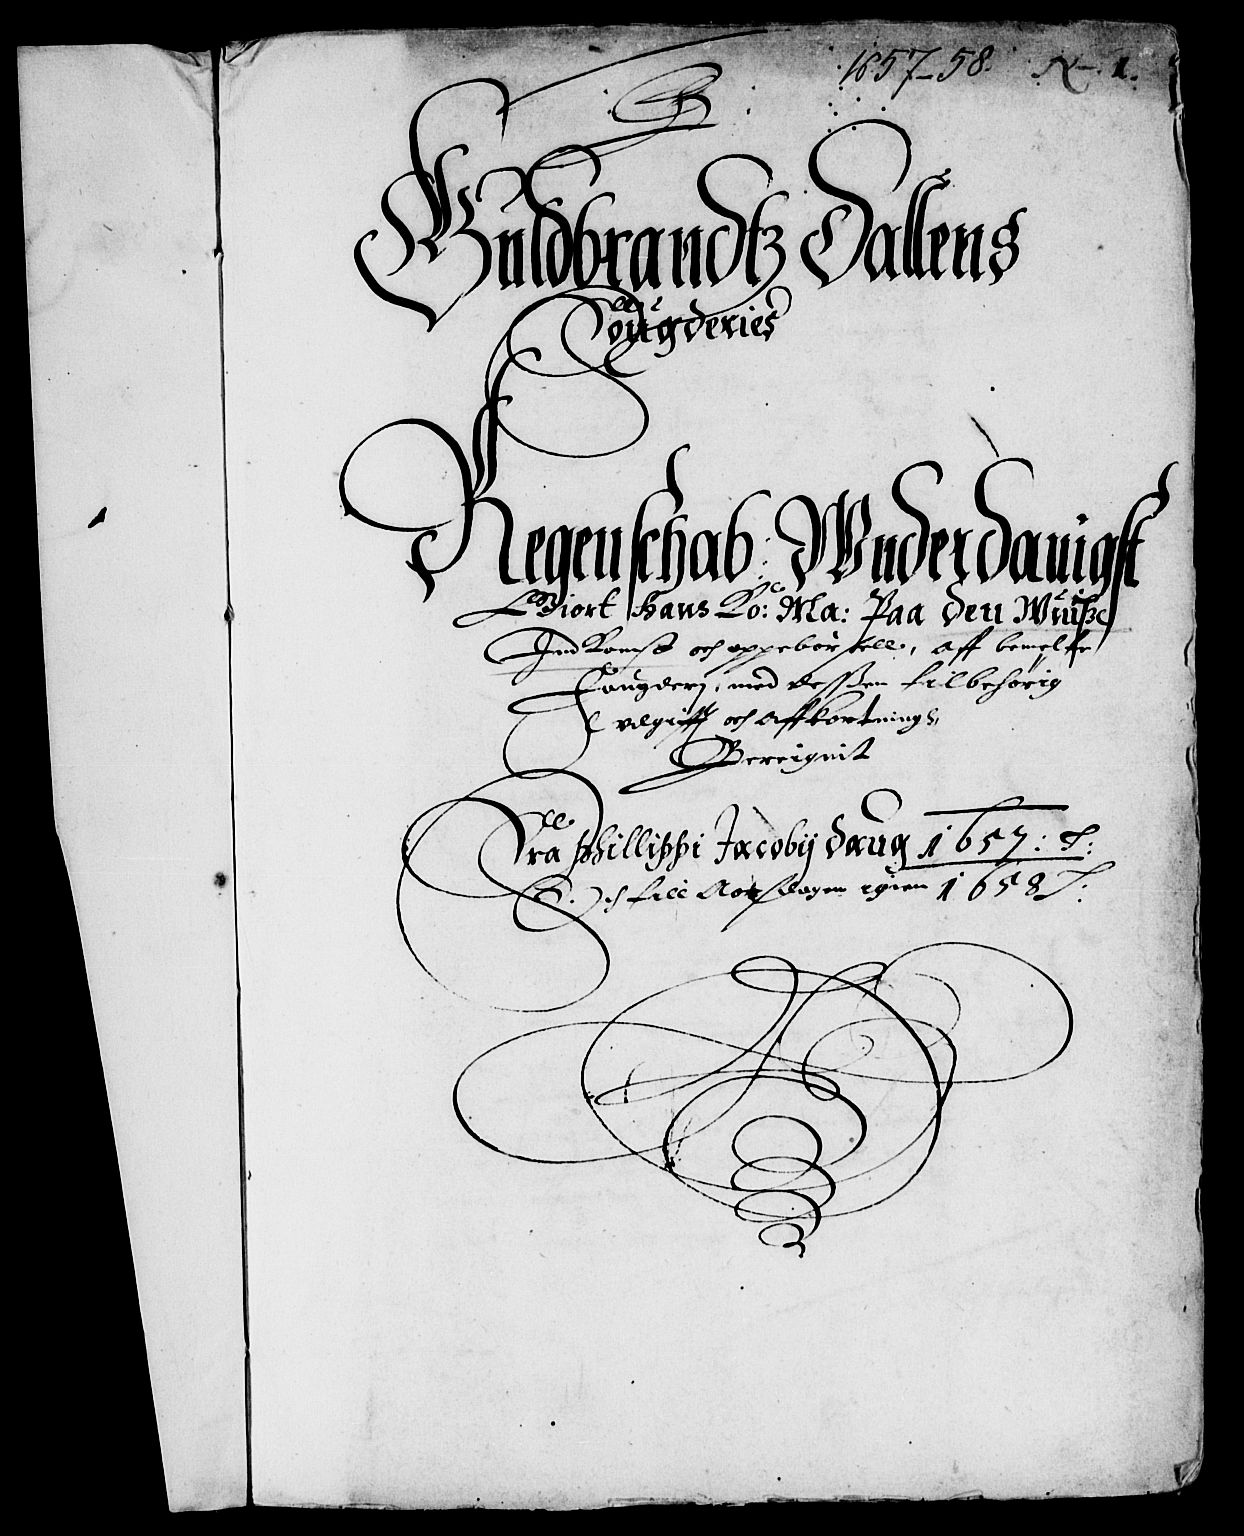 1657-58. N- 1.
G
Guldbrandtz Dallens
Fougderies
Regenschab Wnderdanigst
Giort Hans Ko: Ma: Paa den Wüsze
Ind Komst och oppebörsell, Aff bemelte
Fougderj, med desszen tilbehörig
vdgifft och Affkortnings,
Bereignit
Fra Phillippi Jacobij daug 1657: T:
Och till Aarsdagen igien 1658 T: